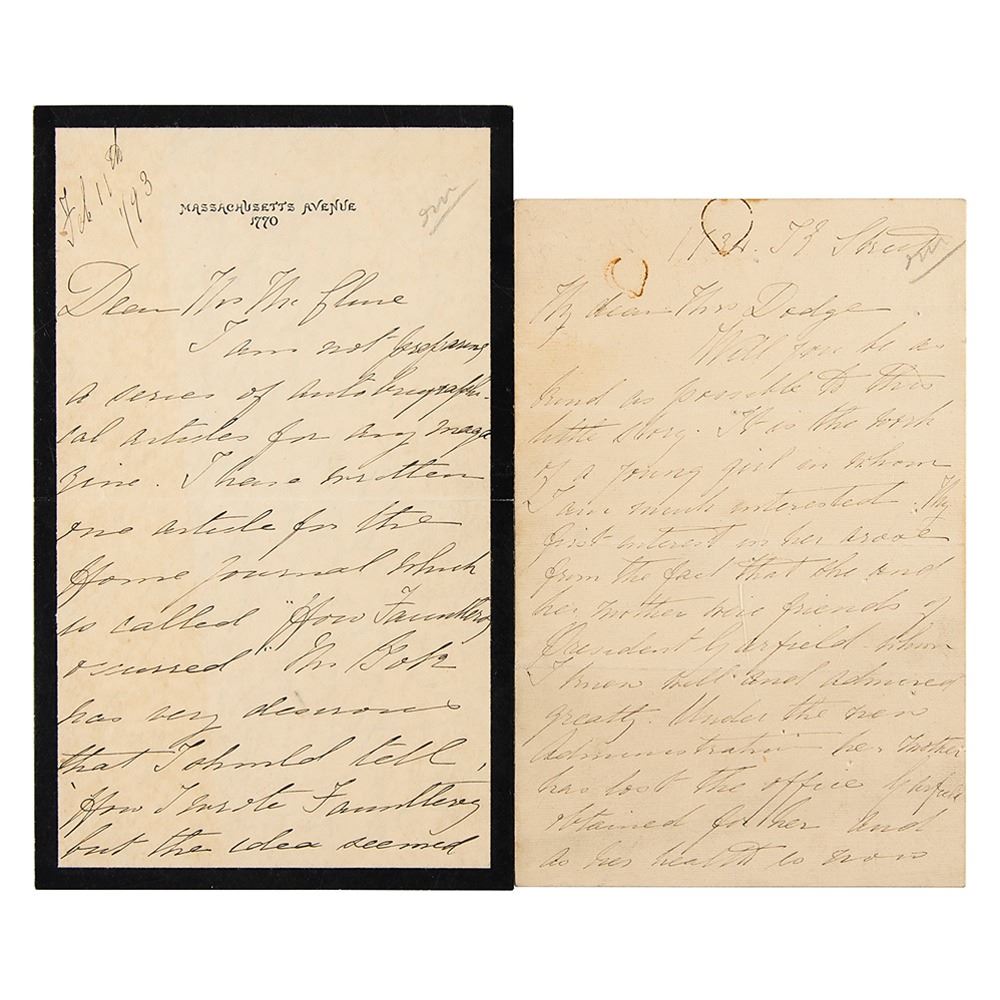 Feb 11th
/93
MASSACHUSETTS AVENUE
1770
Dear Mr Mc Clure
I am not preparing
a series of autobiographi-
cal articles for any maga
zine. I have written
one article for the
Home Journal which
is called "How Fauntleroy
occurred" Mr Bok
was very desirous
that I should tell,
"How I wrote Fauntleroy
but the idea seemed
1734. K Street
My dear Mrs Dodge.
Will you be as
kind as possible to this
little story. It is the work
of a young girl in whom
I am much interested. My
first interest in her arose
from the fact that she and
her mother were friends of
President Garfield whom
I knew well and admired
greatly. Under the new
Administration her mother
has lost the office Garfield
obtained for her and
as her health is now